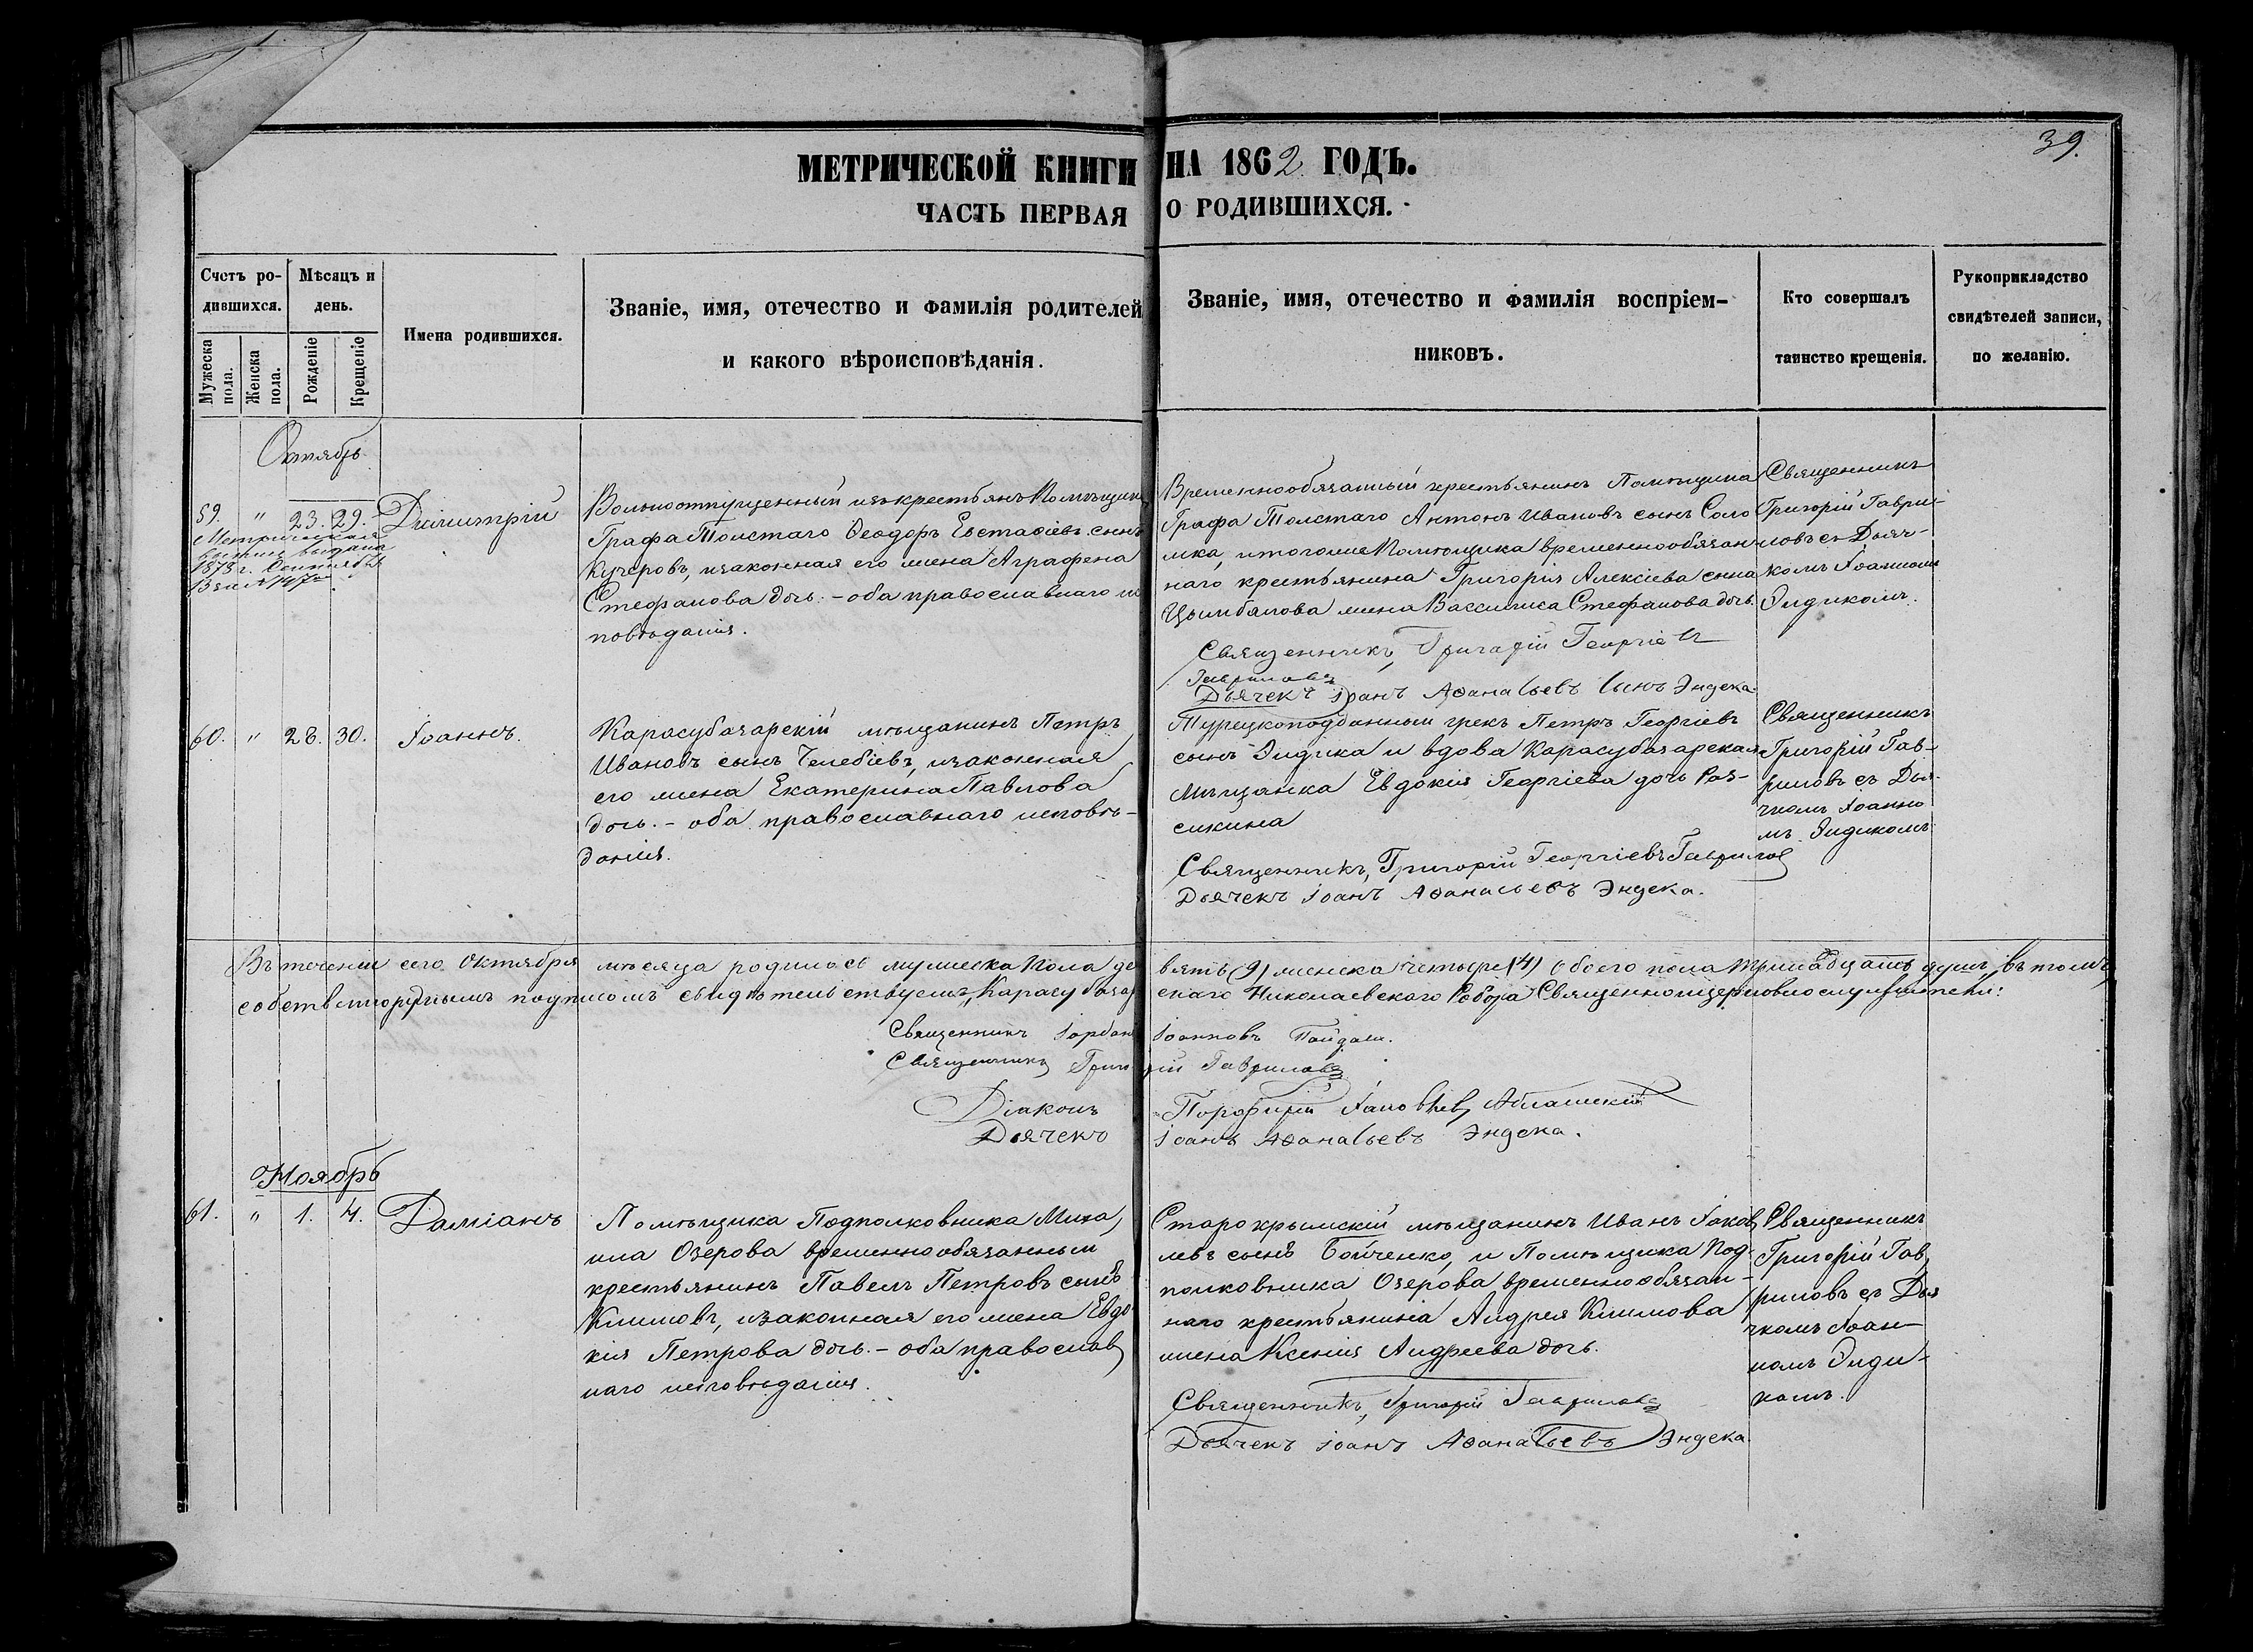 39.
МЕТРИЧЕСКОЙ КНИГИ НА 1862 ГОДЪ.
ЧАСТЬ ПЕРВАЯ О РОДИВШИХСЯ.
Счетъ родившихся.
Мужеска пола.
Женска пола.
Мѣсяцъ и день.
Рожденіе
Крещеніе
Имена родившихся.
Званіе, имя, отечество и фамилія родителей
и какого вѣроисповѣданія.
Званіе, имя, отечество и фамилія воспріем-
никовъ.
Кто совершалъ
таинство крещенія.
Рукоприкладство
свидѣтелей записи,
по желанію.
Октябрь
59. " 23. 29. Димитрій
Метрическая
выпись выдана
1878 г. Сентября
Вольноотпущенный изъ крестьянъ Помѣщика
Графа Толстаго Ѳеодоръ Евстафіевъ сынъ
Кучеровъ, изаконная его жена Аграфена
Стефанова дочь. – оба православнаго ис
повѣданія.
Временнообязанный крестьянинъ Помѣщика
Графа Толстаго Антонъ Ивановъ сынъ Соло
мка, итогоже Помѣщика временнообязан-
наго крестьянина Григорія Алексіева сына
Цымбалова жена Вассилиса Стефанова дочь.
Священникъ, Григорій Георгіевъ
Гавриловъ
Дьячекъ Іоанъ Аѳанасьевъ сынъ Эндека
Священникъ
Григорій Гаври-
ловъ съ Дьяч-
комъ Іоанномъ
Эндикомъ.
60. " 28. 30. Іоаннъ.
Карасубазарскій мѣщанинъ Петръ
Ивановъ сынъ Челебіевъ, изаконная
его жена Екатерина Павлова
дочь. – оба православнаго исповѣ-
данія.
Турецкоподданный грекъ Петръ Георгіевъ
сынъ Эндика и вдова Карасубазарская
Мѣщанка Евдокія Георгіева дочь Раз-
сихина
Священникъ, Григорій Георгіевъ Гаврилов
Дьячекъ Іоанъ Аѳанасьевъ Эндека.
Священникъ
Григорій Гав-
риловъ съ Дья-
чкомъ Іоанно
мъ Эндикомъ
Въ теченіи сего Октября мѣсяца родилось мужеска пола девять (9) женска четыре (4) обоего пола тринадцать душъ въ томъ,
собственноручнымъ подписомъ свидѣтельствуемъ, Карасубазарскаго Николаевскаго Собора Священноицерковнослужители:
Священникъ Іорданъ Іоанновъ Пайдаси.
Священникъ Григорій Гавриловъ
Діаконъ Порфирій Яковлев
Дьячекъ Іоанъ Аѳанасьевъ Эндека.
Ноябрь
61. " 1. 4. Даміанъ
Помѣщика Подполковника Миха,
ила Озерова временнообязанный
крестьянинъ Павелъ Петровъ сынъ
Климовъ, изаконная его жена Евдо
кія Петрова дочь. – оба православ
наго исповѣданія.
Старокрымскій мѣщанинъ Иванъ Іаков
левъ сынъ Бойченко, и Помѣщика Под-
полковника Озерова временнообязан-
наго крестьянина Андрея Климова
жена Ксенія Андреева дочь.
Священникъ, Григорій Гавриловъ
Дьячекъ Іоанъ Аѳанасьевъ Эндека
Священникъ
Григорій Гав,
риловъ съ Дья
чкомъ Іоан-
номъ Энди-
комъ.